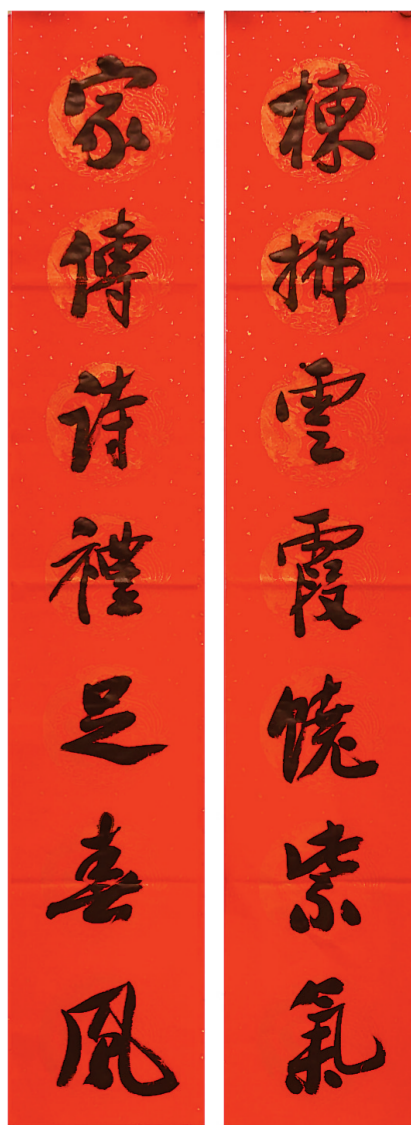 棟拂雲霞饒紫氣
家傳詩禮足春風